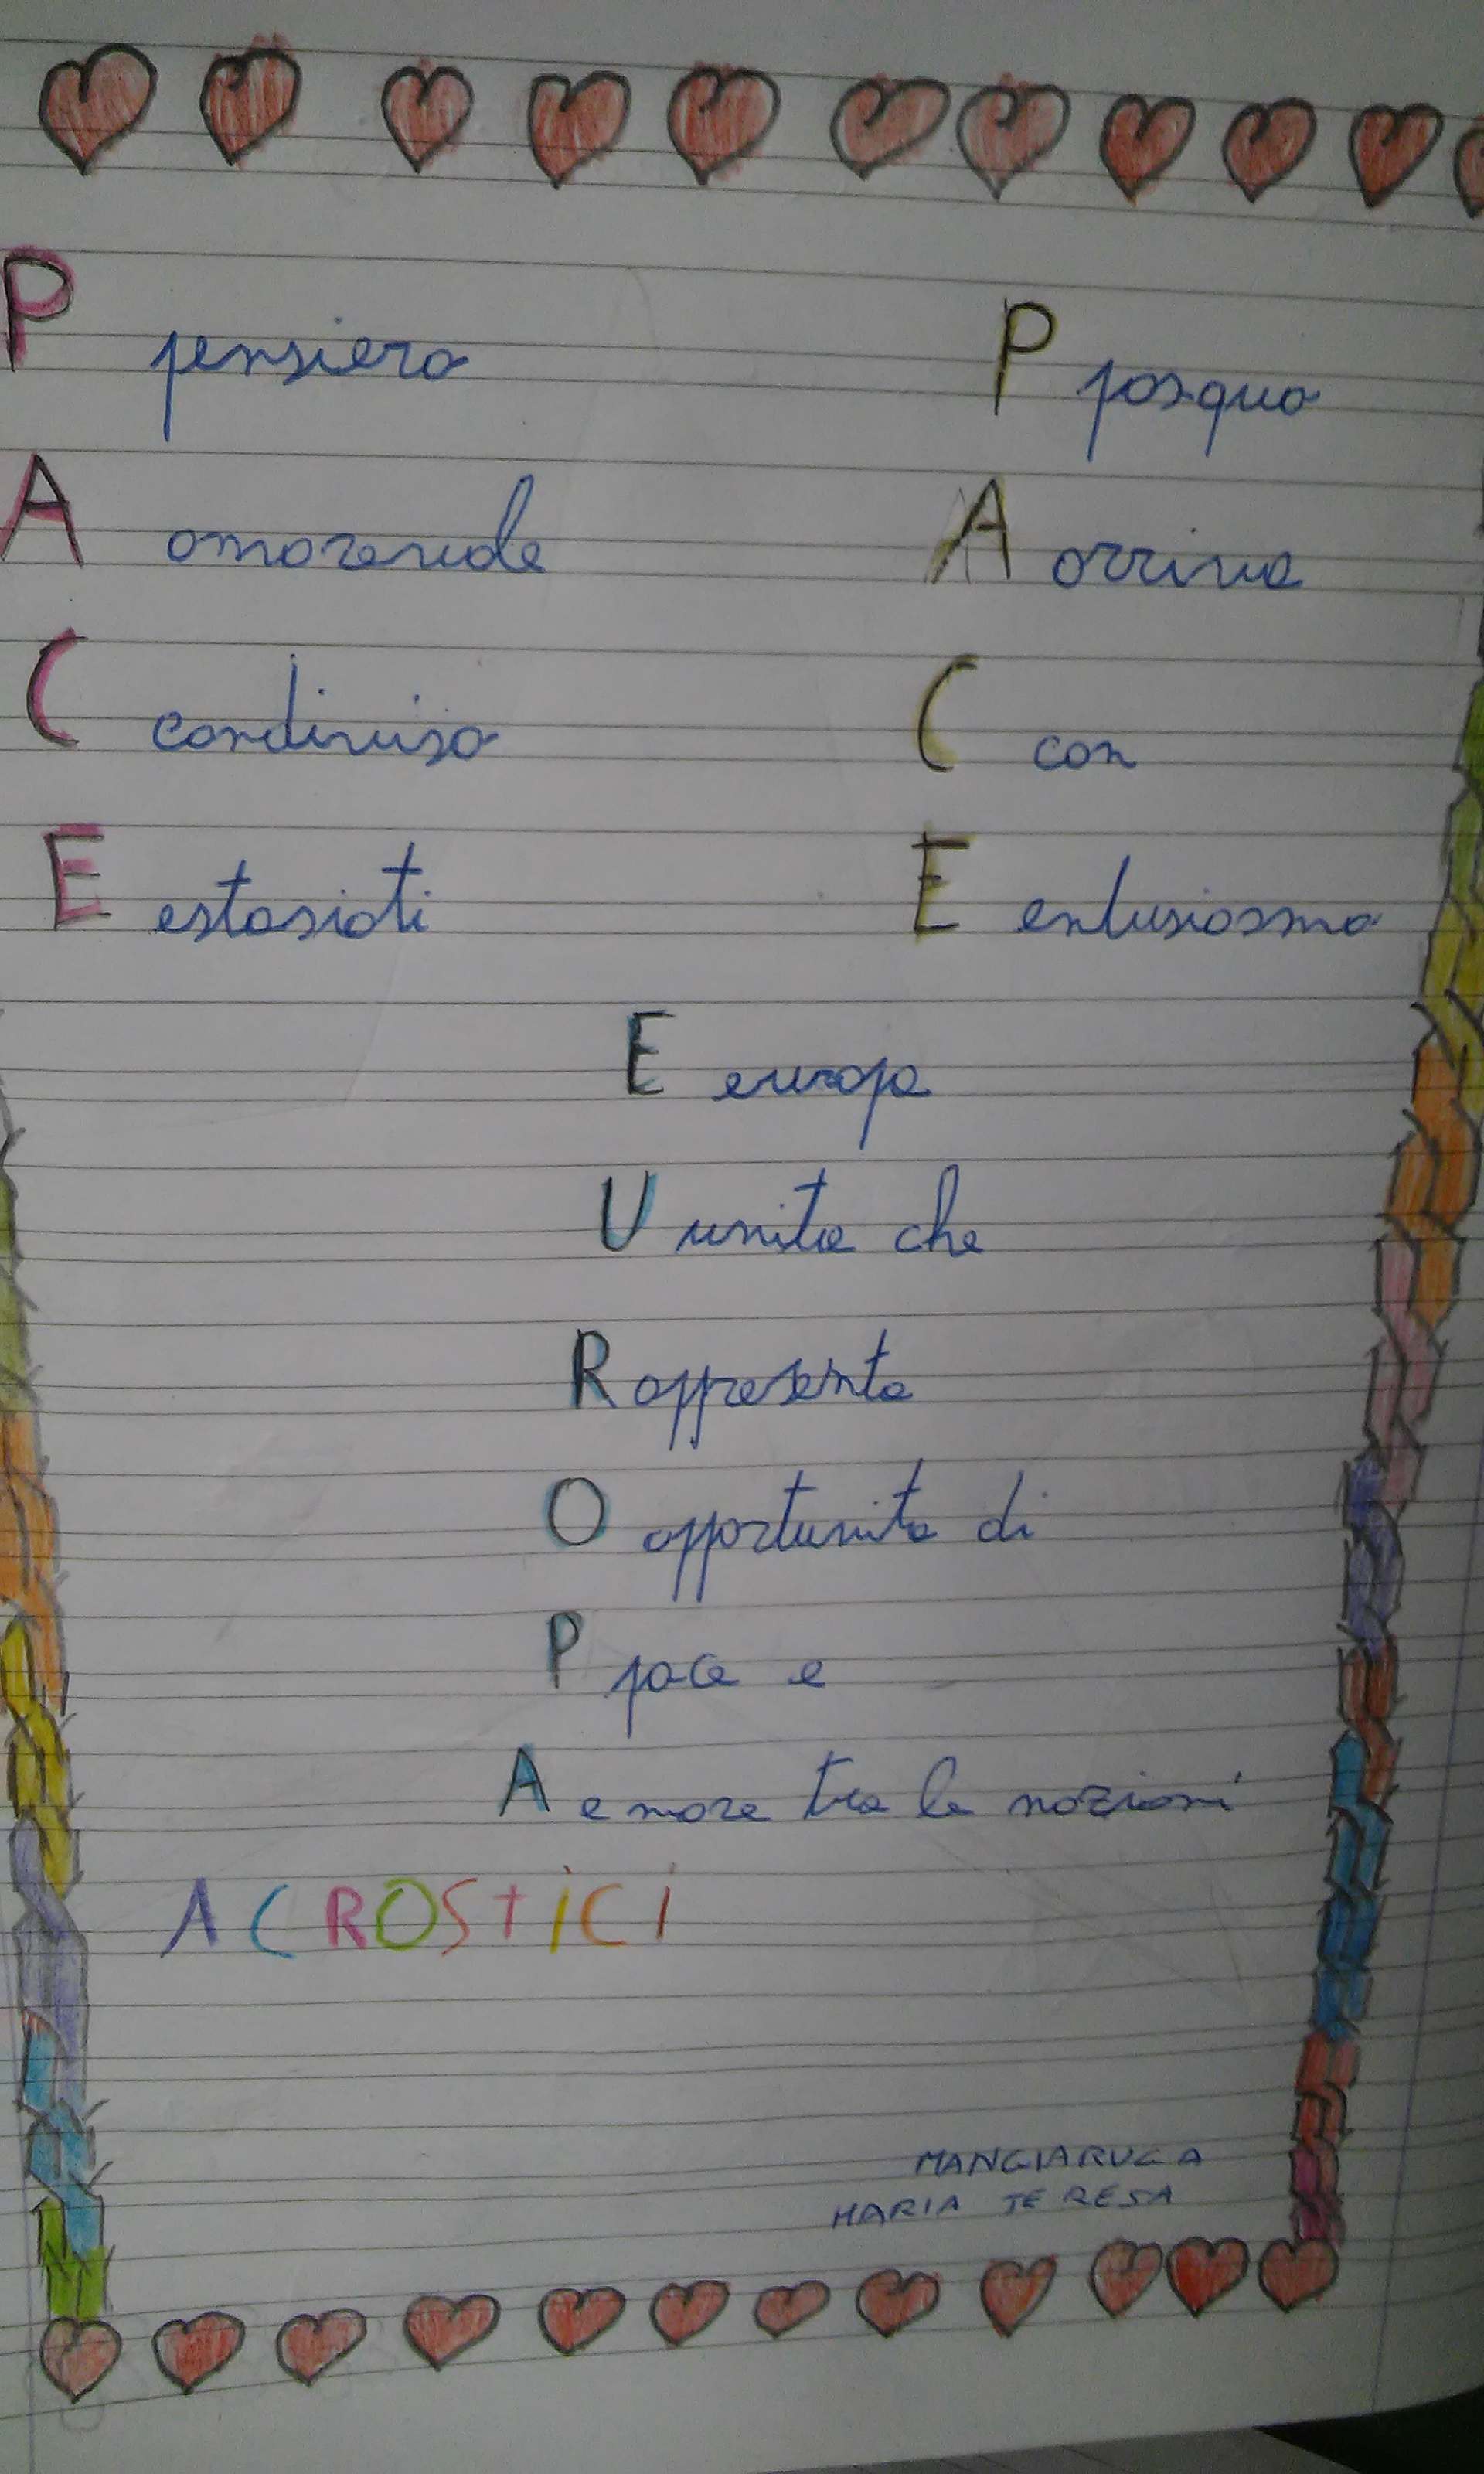 P pensiero
A amorevole
C condiviso
E estasiati
P pasqua
A arriva
C con
E entusiasmo
E europa
U unita che
R appresenta
O opportunita di
P pace e
A amore tra le nazioni
ACROSTICI
MANGIARUGA
MARIA TERESA